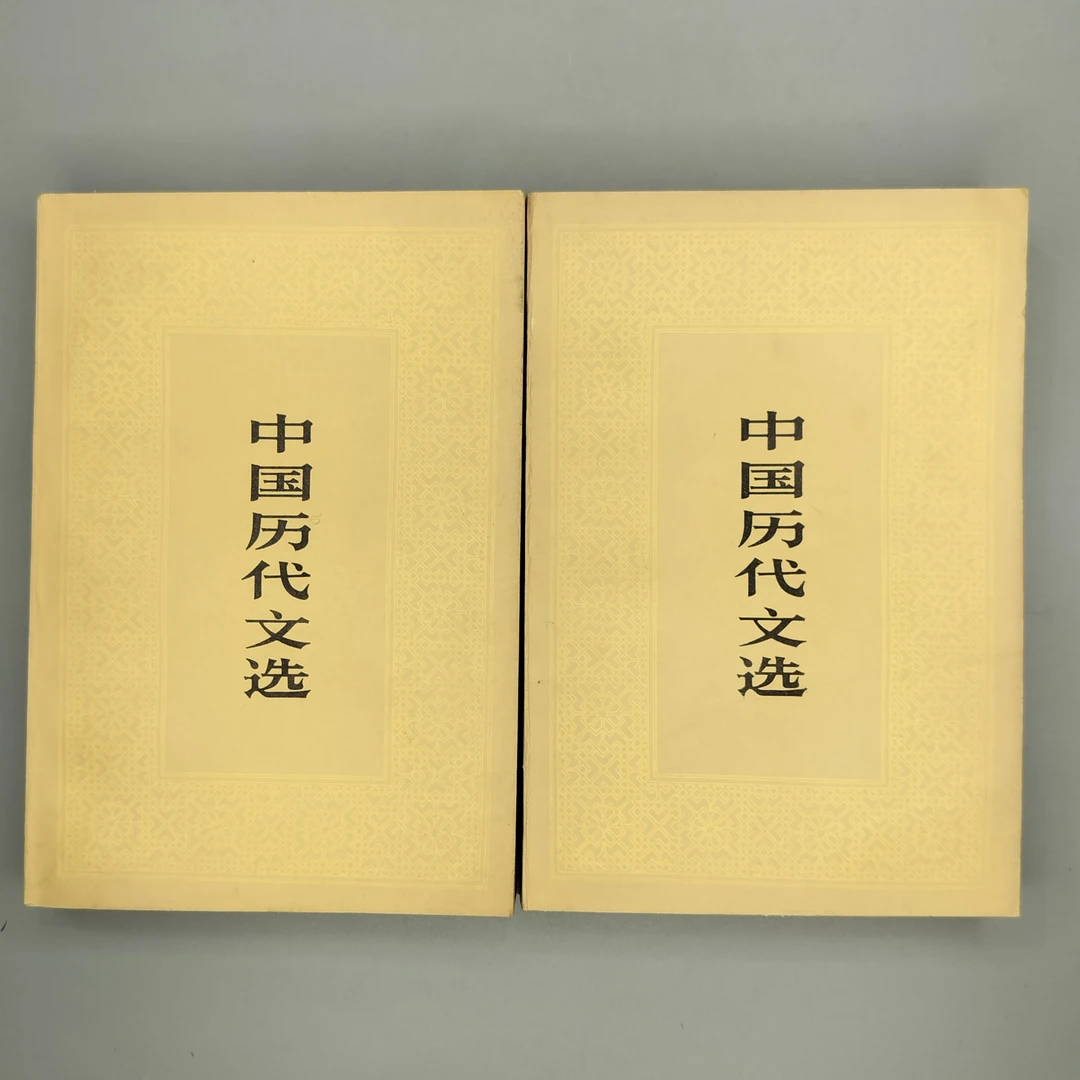 中国历代文选
中国历代文选